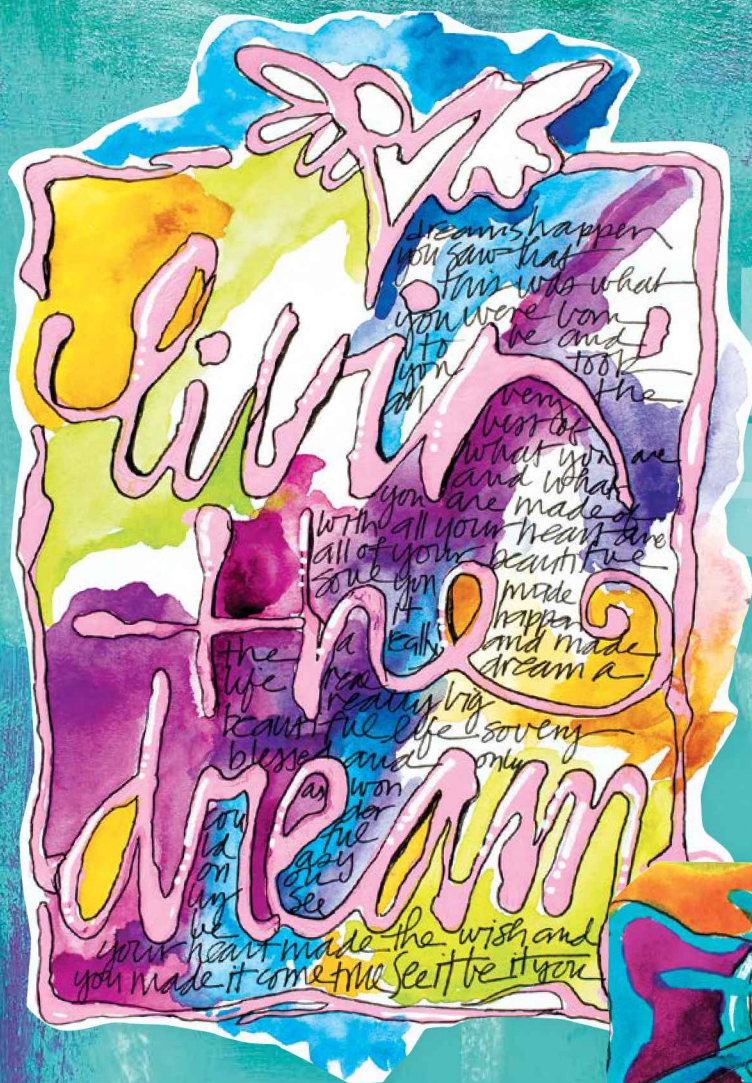 livin
the
dream
dreams happen
you saw that
this was what
you were born
to be and
you took
on very the
best of
what you are
and what
you are made of
with all your heart and
all of your beautiful
soul you made
it happen
the a really and made
life real dream a
really big
beautiful life so very
blessed and only
as won
cou der
ld ful
on as you
ly see
be
your heart made the wish and
you made it come true See it be it you